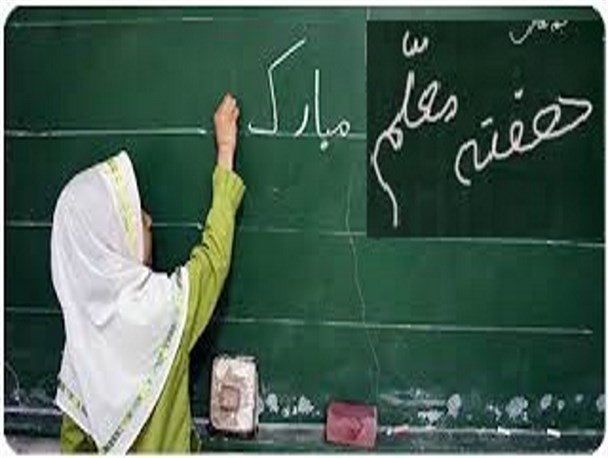 هفته معلّم مبارک